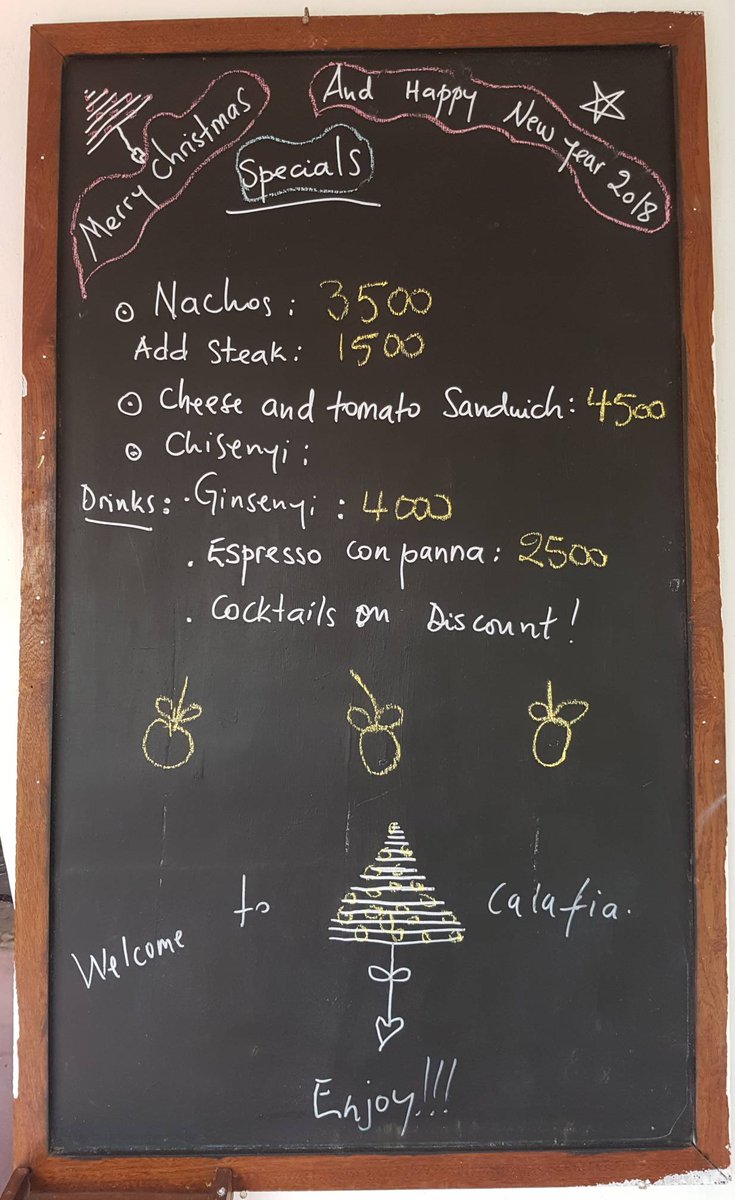 Merry Christmas
And Happy New year 2018
Specials
Nachos: 3500
Add Steak: 1500
Cheese and tomato Sandwich: 4500
Chisenyi:
Drinks: . Ginsenyi: 4000
. Espresso con panna: 2500
. Cocktails on Discount!
Welcome to Calafia.
Enjoy!!!